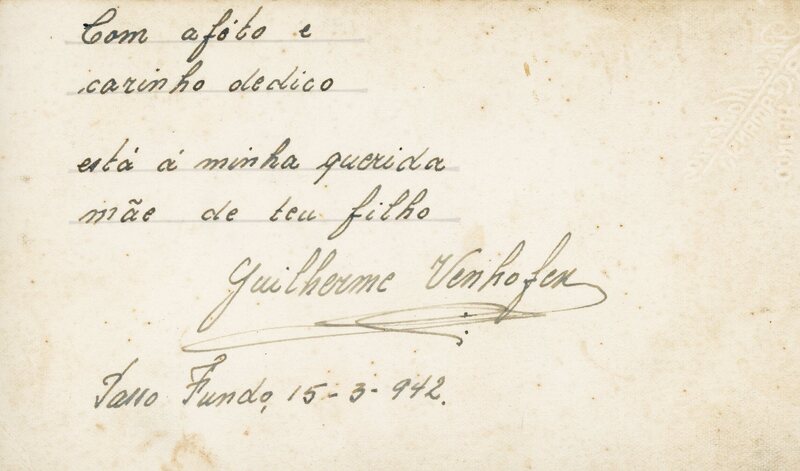 Com afôto e
carinho dedico
está á minha querida
mãe de teu filho
Guilherme Venhofen
Passo Fundo, 15-3-942.